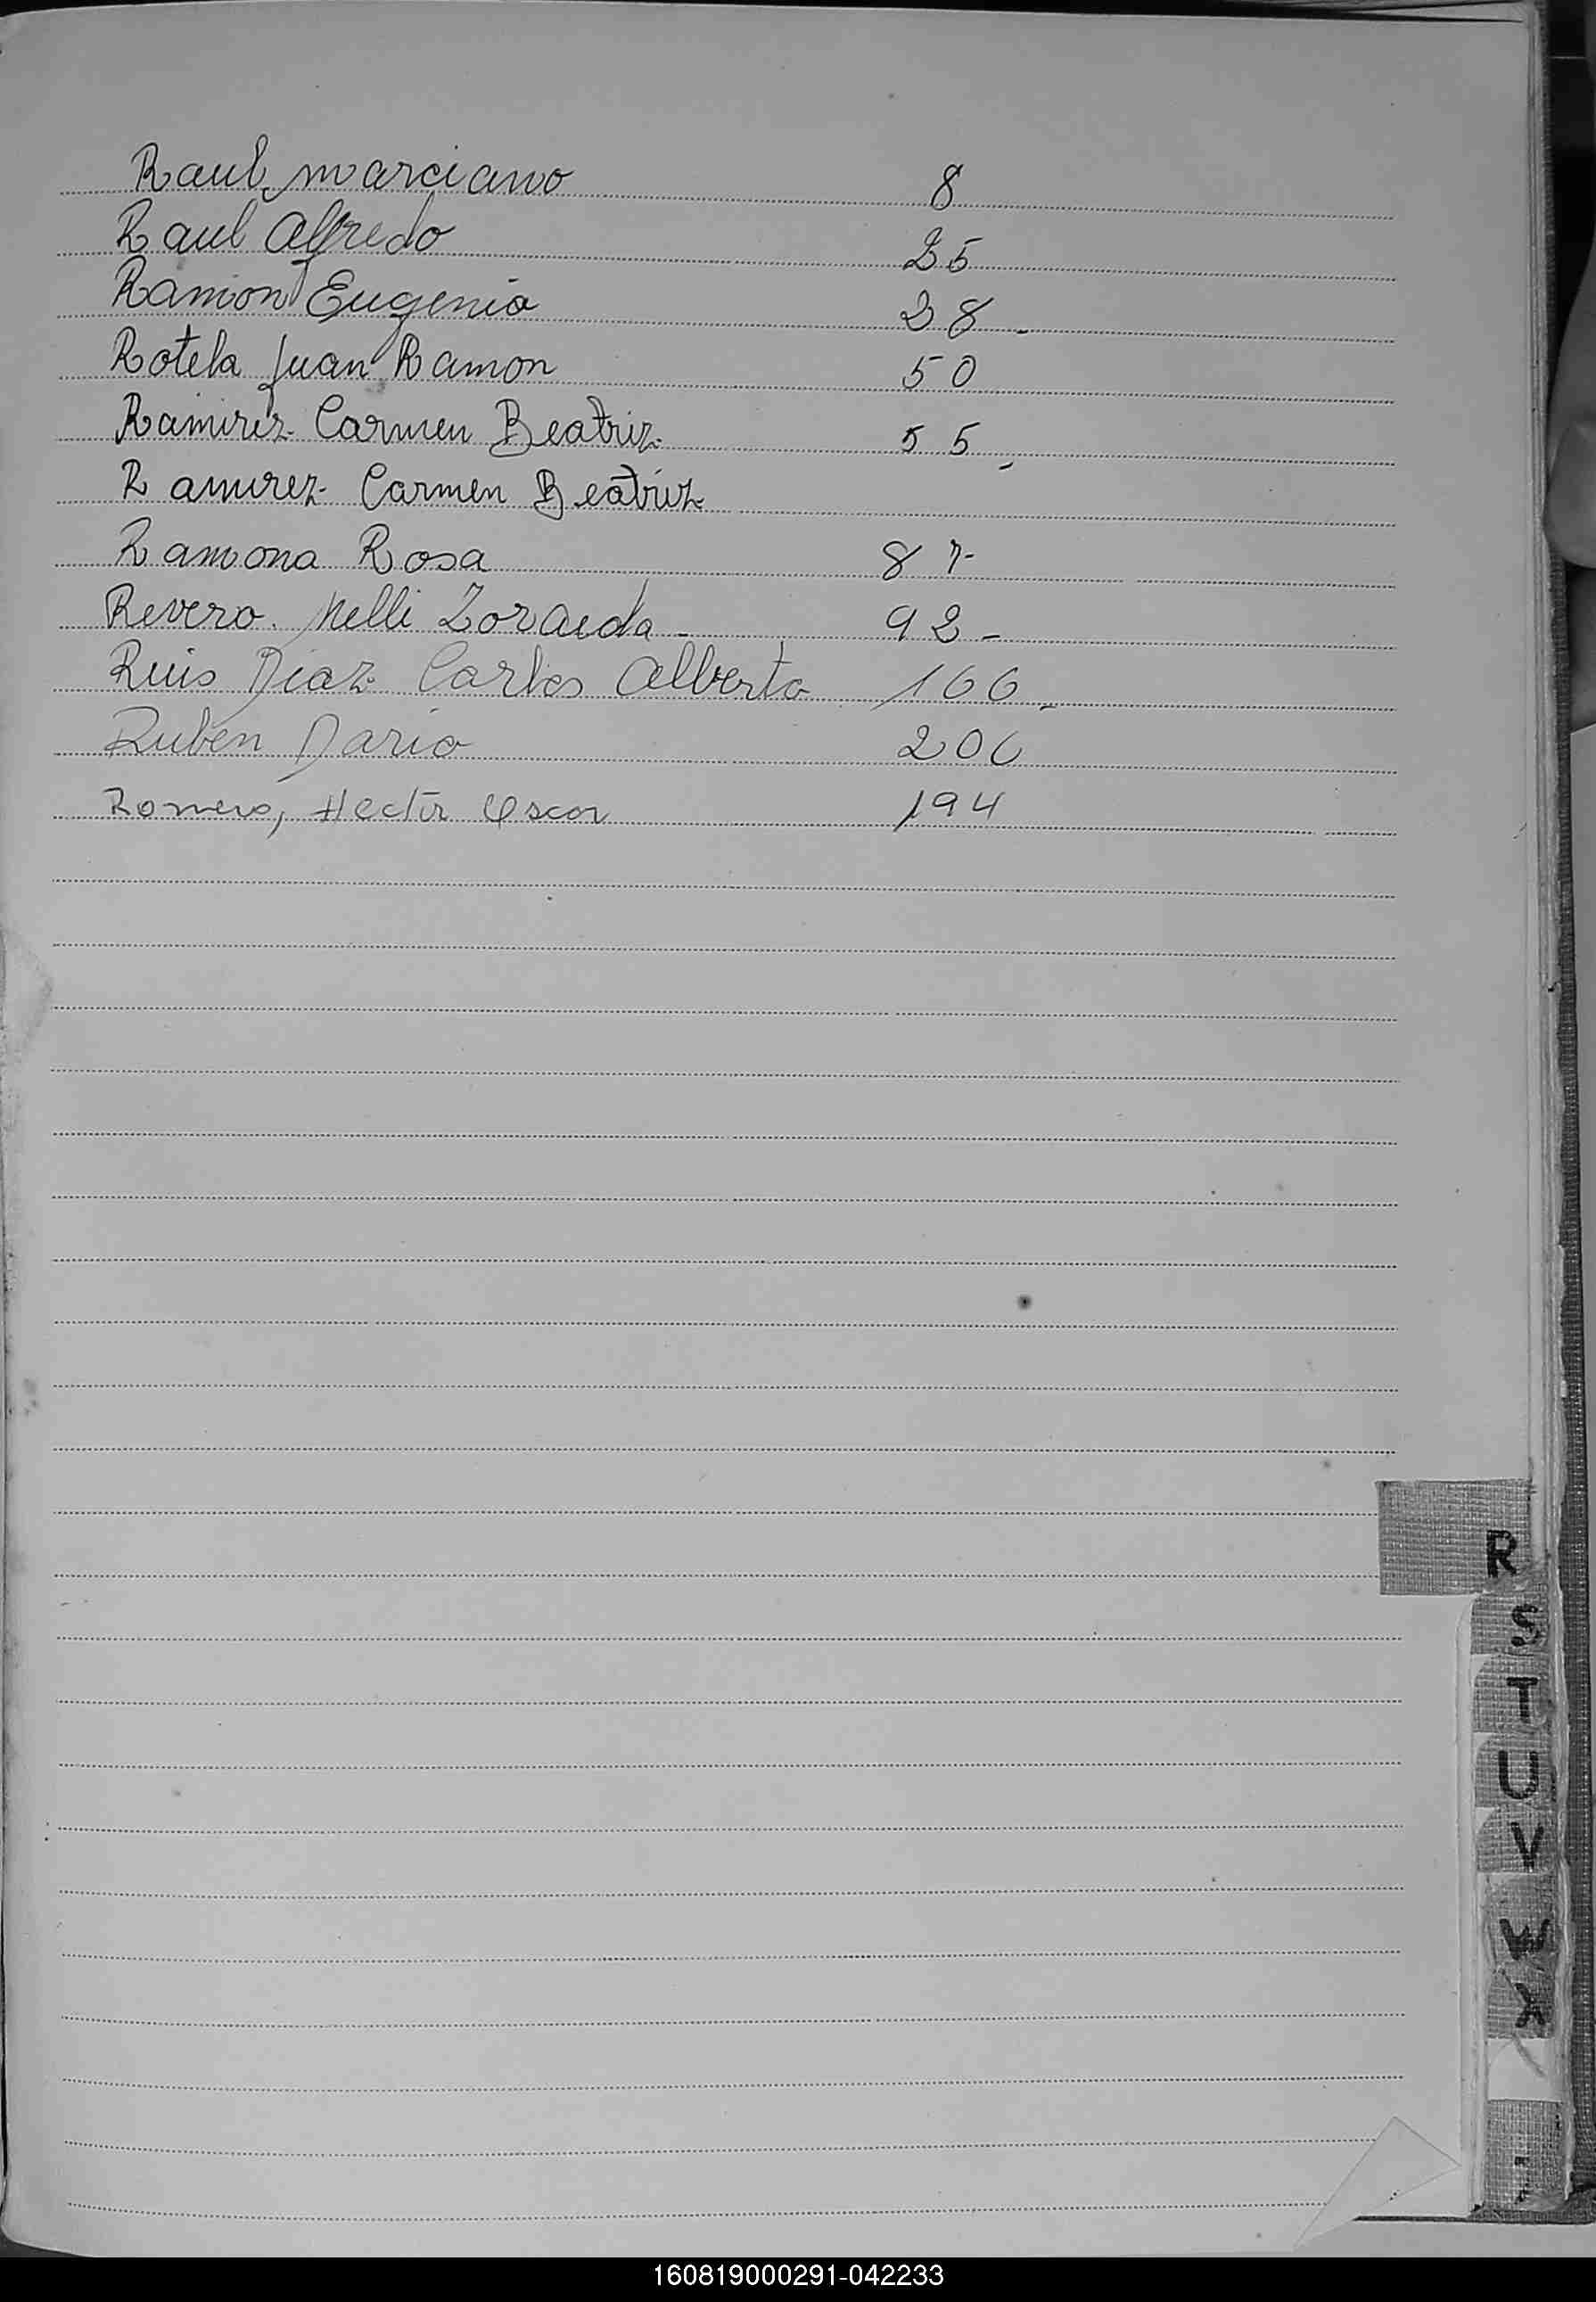 Raul, marciano 8
Raul Alfredo 25
Ramon Eugenio 28 -
Rotela Juan Ramon 50
Ramirez Carmen Beatriz 55 -
Ramirez Carmen Beatriz
Ramona Rosa 87-
Revero. Nelli Zoraida - 92 -
Ruis Diaz Carlos Alberto 166 -
Ruben Dario 206
Romero, Hector Oscar 194
R
S
T
U
V
W
X
160819000291-042233